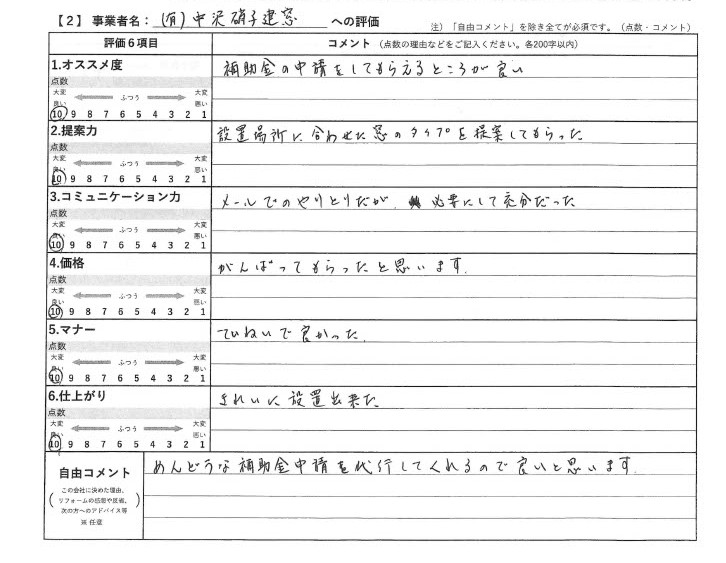 【2】事業者名：(有)中沢硝子建窓 への評価
注）「自由コメント」を除き全てが必須です。（点数・コメント）
評価６項目
コメント（点数の理由などをご記入ください。各200字以内）
1.オススメ度
点数
大変良い ふつう 大変悪い
10 9 8 7 6 5 4 3 2 1
補助金の申請をしてもらえるところが良い
2.提案力
点数
大変良い ふつう 大変悪い
10 9 8 7 6 5 4 3 2 1
設置場所に合わせた窓のタイプを提案してもらった
3.コミュニケーション力
点数
大変良い ふつう 大変悪い
10 9 8 7 6 5 4 3 2 1
メールでのやりとりだが、必要にして充分だった
4.価格
点数
大変良い ふつう 大変悪い
10 9 8 7 6 5 4 3 2 1
がんばってもらったと思います。
5.マナー
点数
大変良い ふつう 大変悪い
10 9 8 7 6 5 4 3 2 1
ていねいで良かった。
6.仕上がり
点数
大変良い ふつう 大変悪い
10 9 8 7 6 5 4 3 2 1
きれいに設置出来た
自由コメント
（この会社に決めた理由、
リフォームの感想や反省、
次の方へのアドバイス等）
※任意
めんどうな補助金申請を代行してくれるので良いと思います。